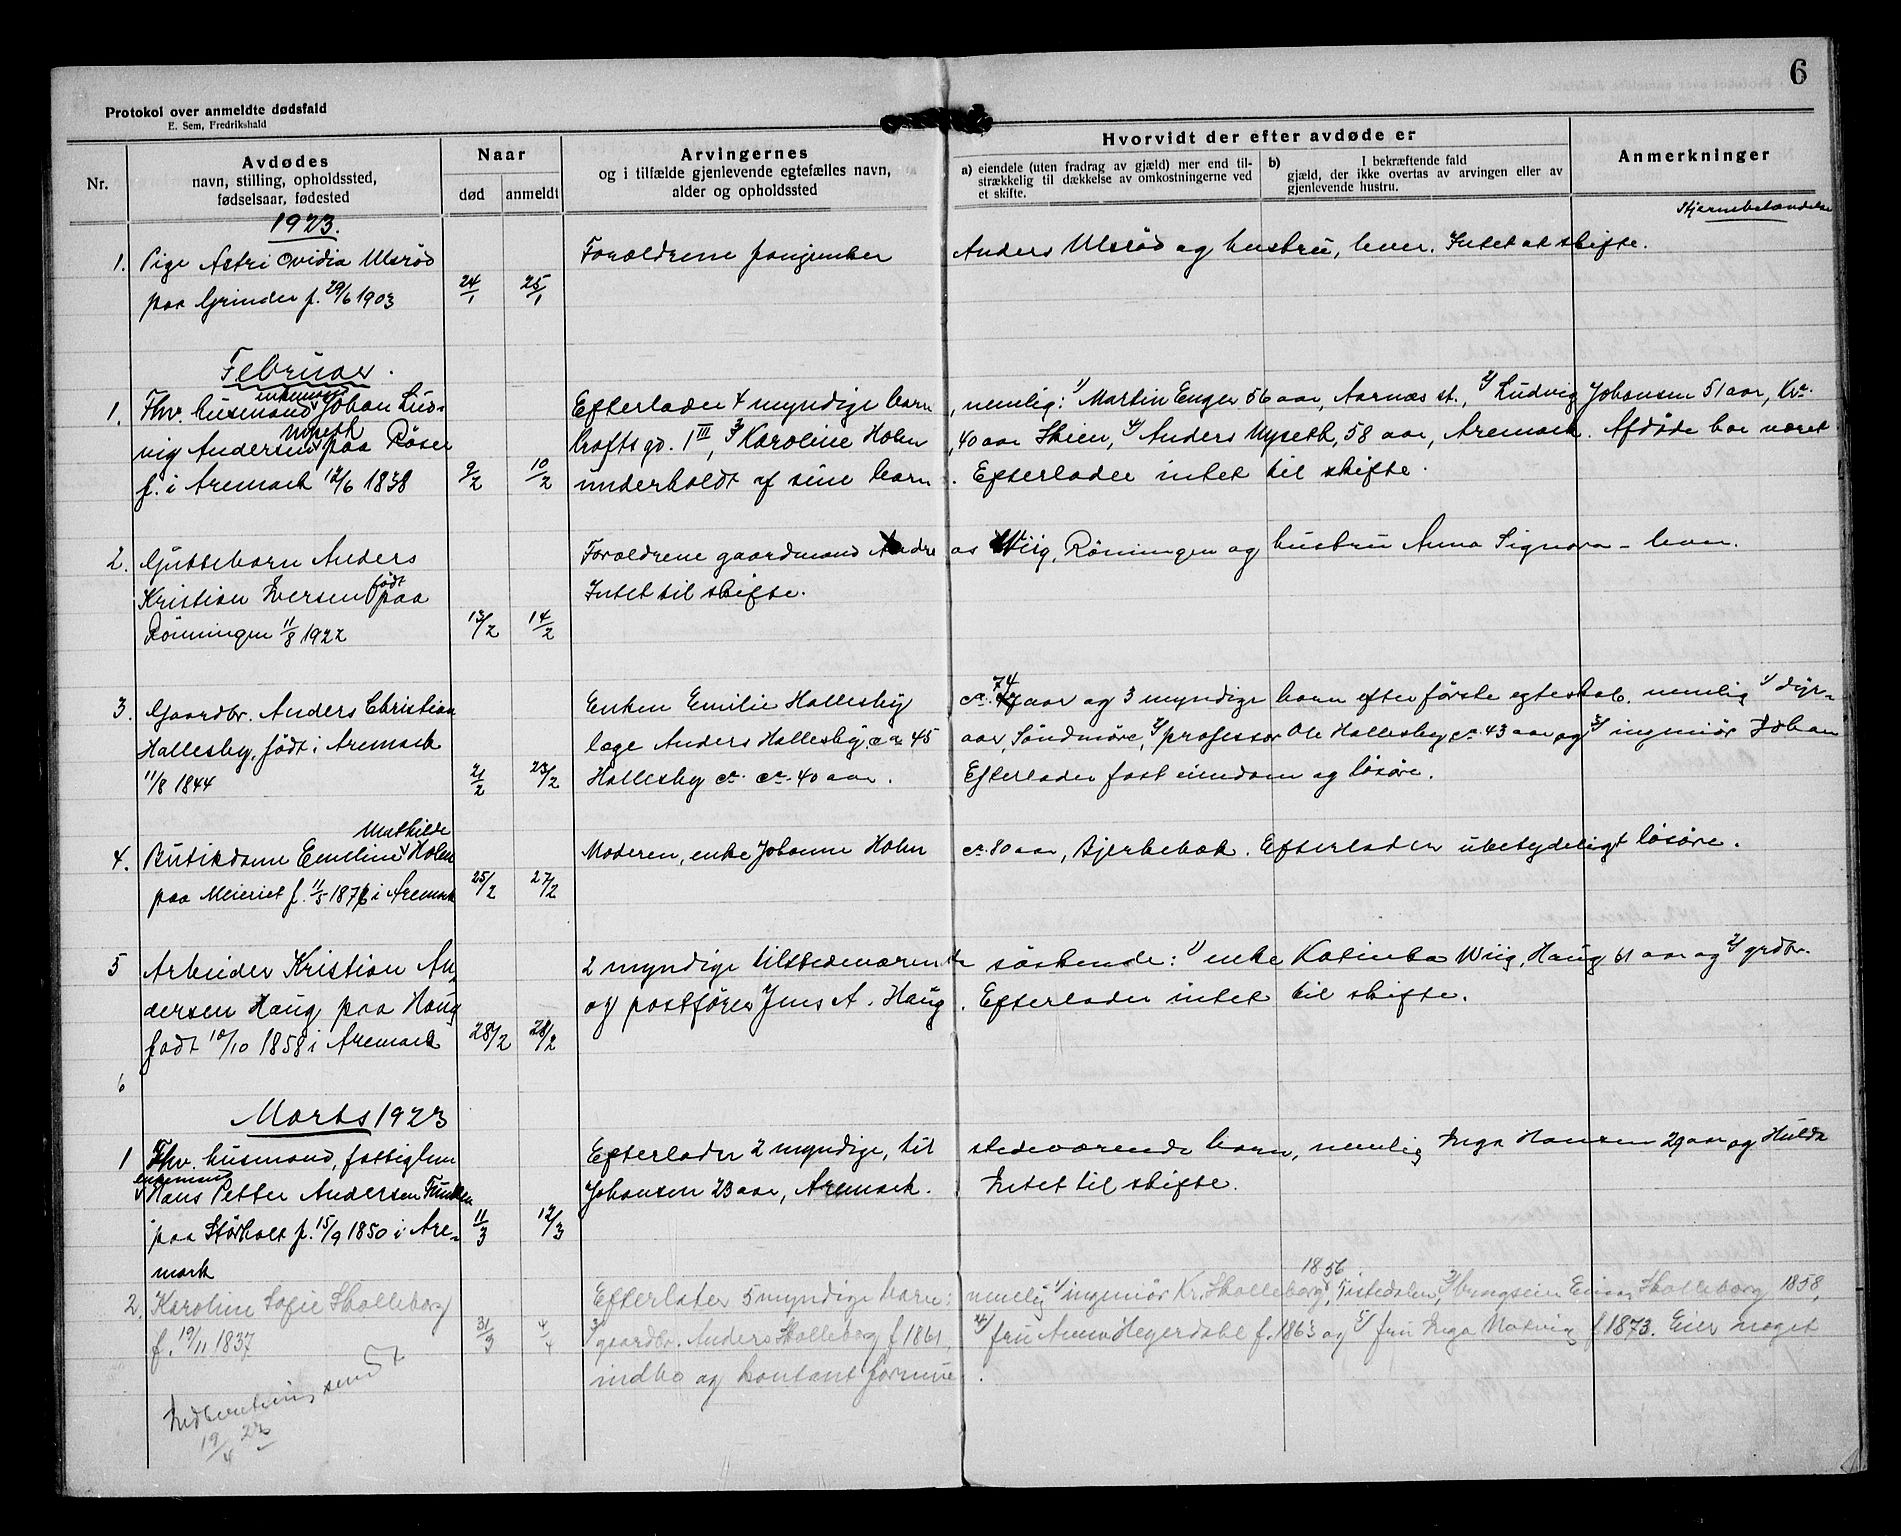 6
Protokol over anmeldte dødsfald
E. Sem, Fredrikshald
Nr.
Avdødes
navn, stilling, opholdssted,
fødselsaar, fødested
Naar
død
anmeldt
Arvingernes
og i tilfælde gjenlevende egtefælles navn,
alder og opholdssted
Hvorvidt der efter avdøde er
a) eiendele (uten fradrag av gjæld) mer end til-
strækkelig til dækkelse av omkostningerne ved
et skifte.
b) I bekræftende fald
gjæld, der ikke overtas av arvingen eller av
gjenlevende hustru.
Anmerkninger
1923.
Hjernebetændelse
1. Pige Astri Ovidia Ulsrød Forældrene Anders Ulsrød og hustru, lever. Intet at skifte.
paa Grinder f. 29/6 1903 24/1 25/1
Februar.
enkemand
1. Fhv. husmand Johan Lud- Efterlader 4 myndige barn, nemlig: 1/ Martin Enger 56 aar, Aarnæs st., 2/ Ludvig Johansen 51 aar, Kr.
Nyseth
vig Andersen paa Røser haftsgd. 1 III, 3/ Karoline Holm, 40 aar Skien, 4/ Anders Nyseth, 58 aar, Aremark. Afdøde har været
f. i Aremark 12/6 1838 9/2 10/2 underholdt af sine barn. Efterlader intet til skifte.
2. Guttebarn Anders Forældrene gaardmand Andreas Wiig, Røningen og hustru Anna Signora - lever.
født
Kristian Iversen paa Intet til skifte.
Rønningen 11/8 1922 13/2 14/2
74
3. Gaardbr. Anders Christian Enken Emilie Hallesby ca. aar og 3 myndige barn efter første egteskab. nemlig 1/ dyr-
Hallesby, født i Aremark læge Anders Hallesby ca 45 aar, Søndmøre, 2/ professor Ole Hallesby ca. 43 aar og 3/ ingeniør Johan
11/8 1844 21/2 23/2 Hallesby ca. 40 aar. Efterlader fast eiendom og løsøre.
Mathilde
4. Butikdame Emeline Holm Moderen, enke Johanne Holm ca. 80 aar, Bjerkebæk. Efterlader ubetydeligt løsøre.
paa Meieriet f. 11/5 1876 i Aremark 25/2 27/2
5 Arbeider Kristian An- 2 myndige tilstedeværende søskende: 1/ enke Katinka Wiig, Haug 61 aar og 2/ grdbr.
dersen Haug, paa Haug og postfører Jens A. Haug. Efterlader intet til skifte.
født 10/10 1858 i Aremark 28/2 28/2
6
Marts 1923
1 Fhv. husmand, fattiglem Efterlader 2 myndige, tilstedeværende barn, nemlig Inga Hansen 29 aar og Hulda
enkemand
Hans Petter Andersen Johansen 23 aar, Aremark. Intet til skifte.
paa Størholt f. 15/9 1850 i Are- 11/3 12/3
mark
1856
2. Karoline Sofie Skolleborg Efterlater 5 myndige barn: nemlig 1/ ingeniør Kr. Skolleborg, Tistedalen, 2/ Skolleborg 1858,
f. 19/11 1837 31/3 4/4 3/ gaardbr. Anders Skolleborg f. 1861, 4/ fru Anna Hegerdahl f. 1863 og 5/ fru Inga f. 1873. Eier noget
indbo og kontant formue.
Indberetning sendt
19/4 23